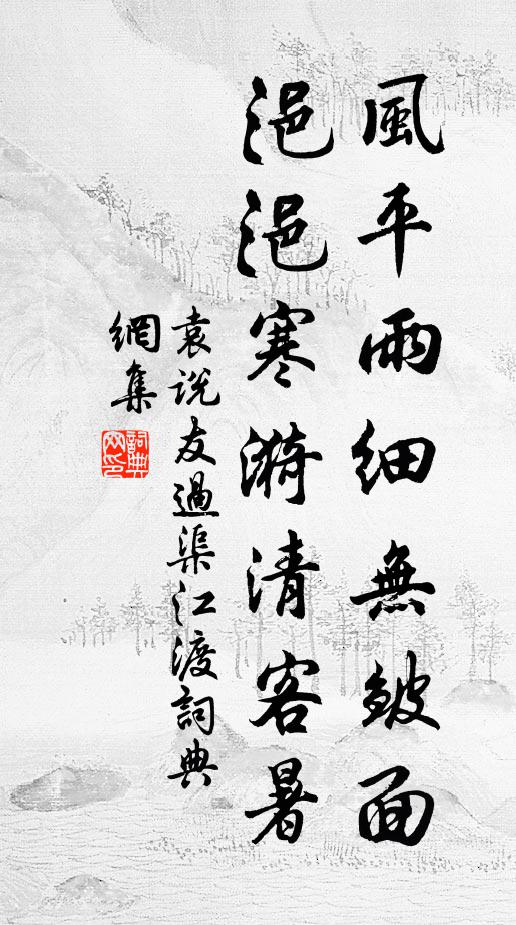 風平雨細無皴面
浥浥寒漪清客暑
袁說友過渠江渡詞典
網集
詞典網印